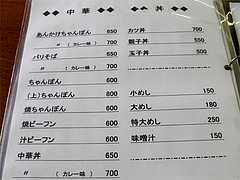 ◆◆ 中華 ◆◆
あんかけちゃんぽん 650
〃 (カレー味) 700
バリそば 650
〃 (カレー味) 700
ちゃんぽん 600
(上)ちゃんぽん 800
焼ちゃんぽん 600
焼ビーフン 600
汁ビーフン 600
中華丼 650
〃 (カレー味) 700
◆◆ 丼 ◆◆
カツ丼 700
親子丼 550
玉子丼 500
小めし 150
大めし 180
特大めし 250
味噌汁 150